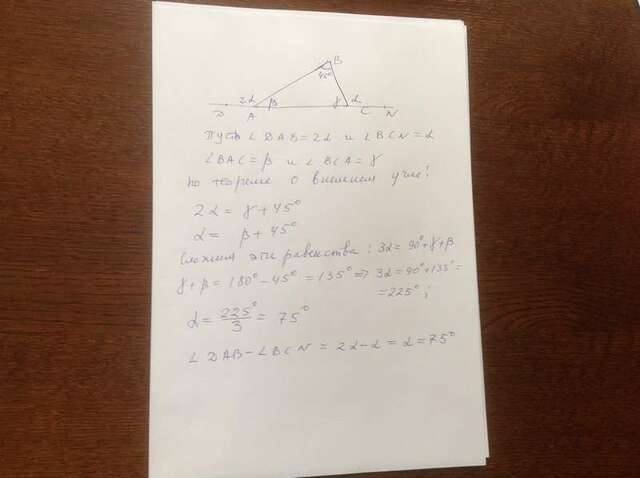 B
45°
2α β γ α
D A C N
Пусть ∠DAB=2α и ∠BCN=α
∠BAC=β и ∠BCA=γ
По теореме о внешнем угле:
2α = γ+45°
α = β+45°
Сложим эти равенства: 3α=90°+γ+β
γ+β=180°-45°=135° ⇒ 3α=90°+135°=
=225°;
α=225°/3=75°
∠DAB-∠BCN=2α-α=α=75°